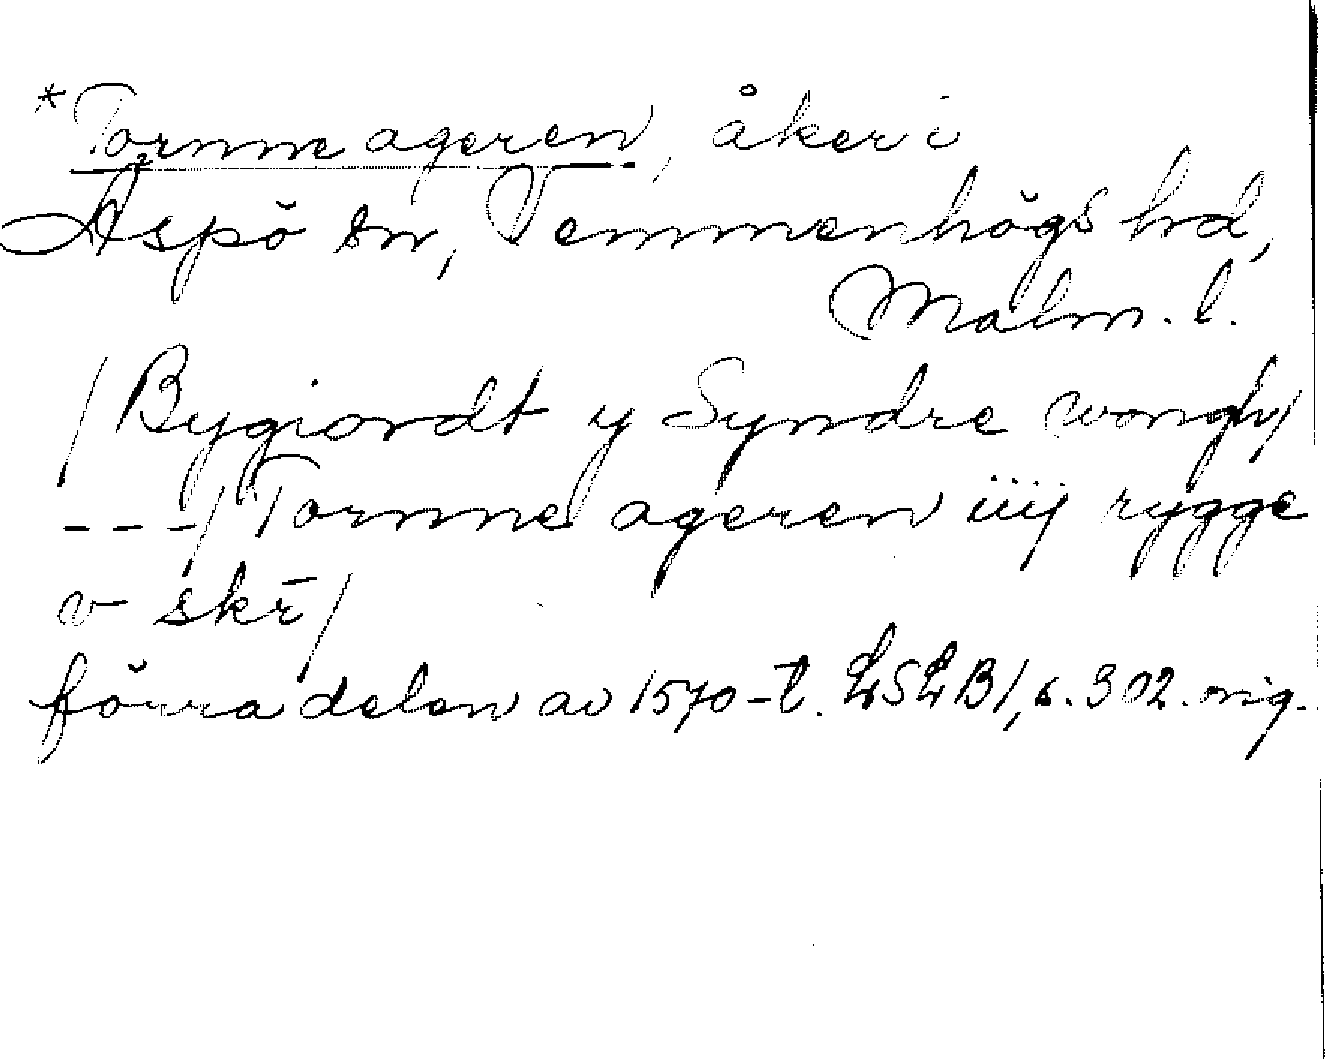 *Tornne ageren, åker i
Äspö sn, Vemmenhögs hd,
Malm. l.
/Bygiordt y Syndre wongh/
---/Tornne ageren iiij rygge
v skr̄/
förra delen av 1570-t. LSLB1, s. 302. orig.